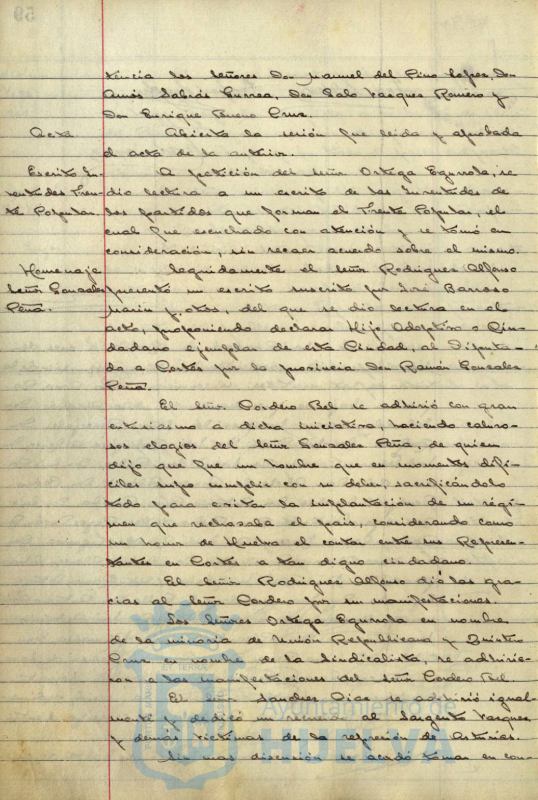 59
tencia los Señores Don Manuel del Pino Lopez, Don
Amós Sabrás Gurrea, Don Galo Vazquez Romero y
Don Enrique Bueno Cruz.
Acta
Abierta la sesión fue leida y aprobada
el acta de la anterior.
Escrito Ju-
ventudes Fren-
te Popular.
A petición del Señor Ortega Egurrola, se
dio lectura a un escrito de las Juventudes de
los partidos que forman el Frente Popular, el
cual fue escuchado con atención y se tomó en
consideración, sin recaer acuerdo sobre el mismo.
Homenaje
Señor Gonzalez
Peña.
Seguidamente el Señor Rodriguez Alfonso
presentó un escrito suscrito por José Barroso
Marin y otros, del que se dio lectura en el
acto, proponiendo declarar Hijo Adoptivo o Ciu-
dadano ejemplar de esta Ciudad, al Diputa-
do a Cortes por la provincia Don Ramón Gonzalez
Peña.
El Señor Cordero Bel se adhirió con gran
entusiasmo a dicha iniciativa, haciendo caluro-
sos elogios del Señor Gonzalez Peña, de quien
dijo que fue un hombre que en momentos difi-
ciles supo cumplir con su deber, sacrificándolo
todo para evitar la implantación de un régi-
men que rechazaba el pais, considerando como
un honor de Huelva el contar entre sus Represen-
tantes en Cortes a tan digno ciudadano.
El Señor Rodriguez Alfonso dió las gra-
cias al Señor Cordero por sus manifestaciones.
Los Señores Ortega Egurrola en nombre
de la minoria de Unión Republicana y Quintero
Cruz en nombre de la Sindicalista, se adhirie-
ron a las manifestaciones del Señor Cordero Bel
El Señor Sanchez Diaz se adhirió igual-
mente y dedicó un recuerdo al Sargento Vazquez
y demás victimas de la represión de Asturias.
Sin mas discusión se acordó tomar en con-
Ayuntamiento de
HUELVA